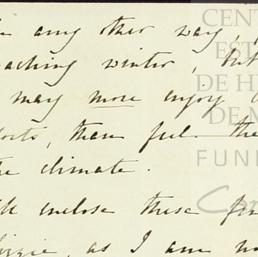 any other way,
winter, but
may more enjoy
than feel the
climate.
enclose these
as I am
CENT
EST
DE H
DE M
FUND